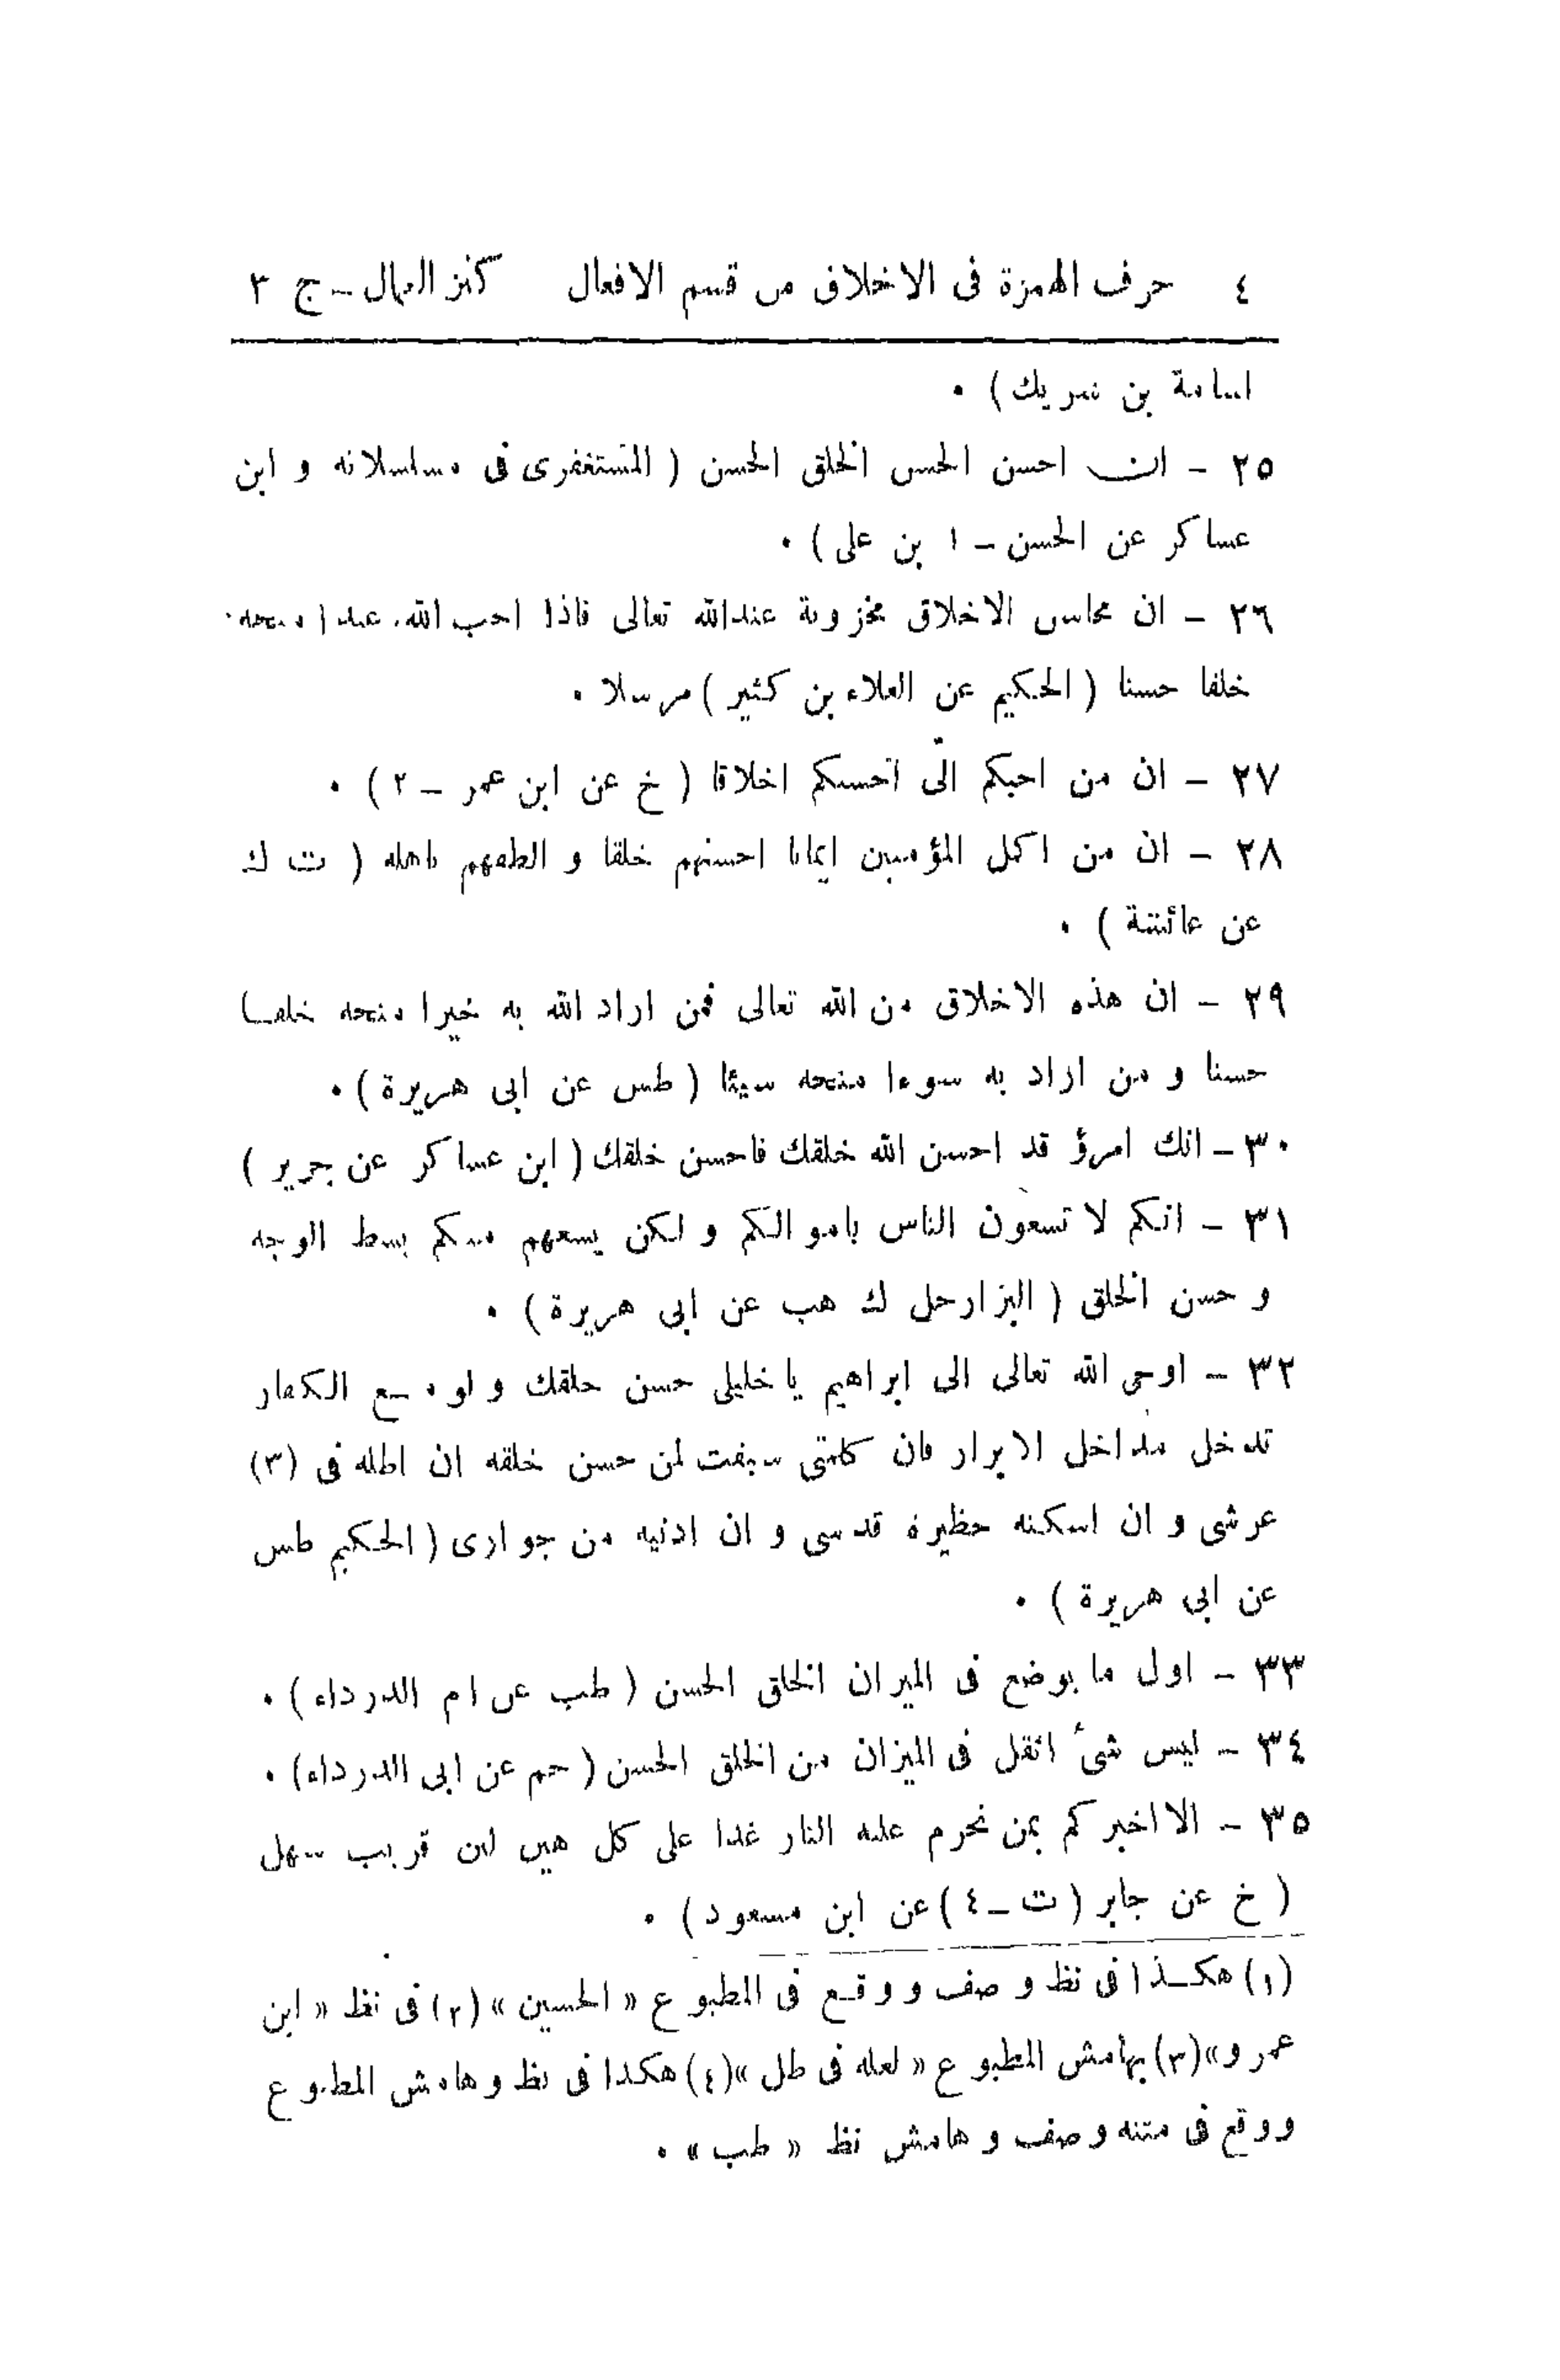 ٤ حرف الهمزة فى الاخلاق من قسم الافعال كنز العمال ـ ج ٣
اسامة بن شريك ) ٠
٢٥ – ان احسن الحسن الخلق الحسن ( المستغفرى فى مسلسلاته و ابن
عساكر عن الحسن – ١ بن على ) ٠
٢٦ – ان محاسن الاخلاق مخزونة عند الله تعالى فاذا احب الله عبدا منحه
خلقا حسنا ( الحكيم عن العلاء بن كثير ) مرسلا ٠
٢٧ – ان من احبكم الىّ احسنكم اخلاقا ( خ عن ابن عمر – ٢ ) ٠
٢٨ – ان من اكمل المؤمنين ايمانا احسنهم خلقا و الطفهم باهله ( ت ك
عن عائشة ) ٠
٢٩ – ان هذه الاخلاق من الله تعالى فمن اراد الله به خيرا منحه خلقا
حسنا و من اراد به سوءا منحه سيئا ( طس عن ابى هريرة ) ٠
٣٠ – انك امرؤ قد احسن الله خلقك فاحسن خلقك ( ابن عساكر عن جرير )
٣١ – انكم لا تسعون الناس باموالكم و لكن يسعهم منكم بسط الوجه
و حسن الخلق ( البزار حل ك هب عن ابى هريرة ) ٠
٣٢ – اوحى الله تعالى الى ابراهيم يا خليلى حسن خلقك و لو مع الكفار
تدخل مداخل الابرار فان كلمتى سبقت لمن حسن خلقه ان اظله فى (٣)
عرشى و ان اسكنه حظيرة قدسى و ان ادنيه من جوارى ( الحكيم طس
عن ابى هريرة ) ٠
٣٣ – اول ما يوضع فى الميزان الخلق الحسن ( طب عن ام الدرداء ) ٠
٣٤ – ليس شىء اثقل فى الميزان من الخلق الحسن ( حم عن ابى الدرداء ) ٠
٣٥ – الا اخبركم بمن تحرم عليه النار غدا على كل هين لين قريب سهل
( خ عن جابر ( ت – ٤ ) عن ابن مسعود ) ٠
(١) هكذا فى نظ و صف و وقع فى المطبوع « الحسين » (٢) فى نظ « ابن
عمرو» (٣) بهامش المطبوع « لعله فى ظل » (٤) هكذا فى نظ و هامش المطبوع
ووقع فى متنه و صف و هامش نظ « طب » ٠